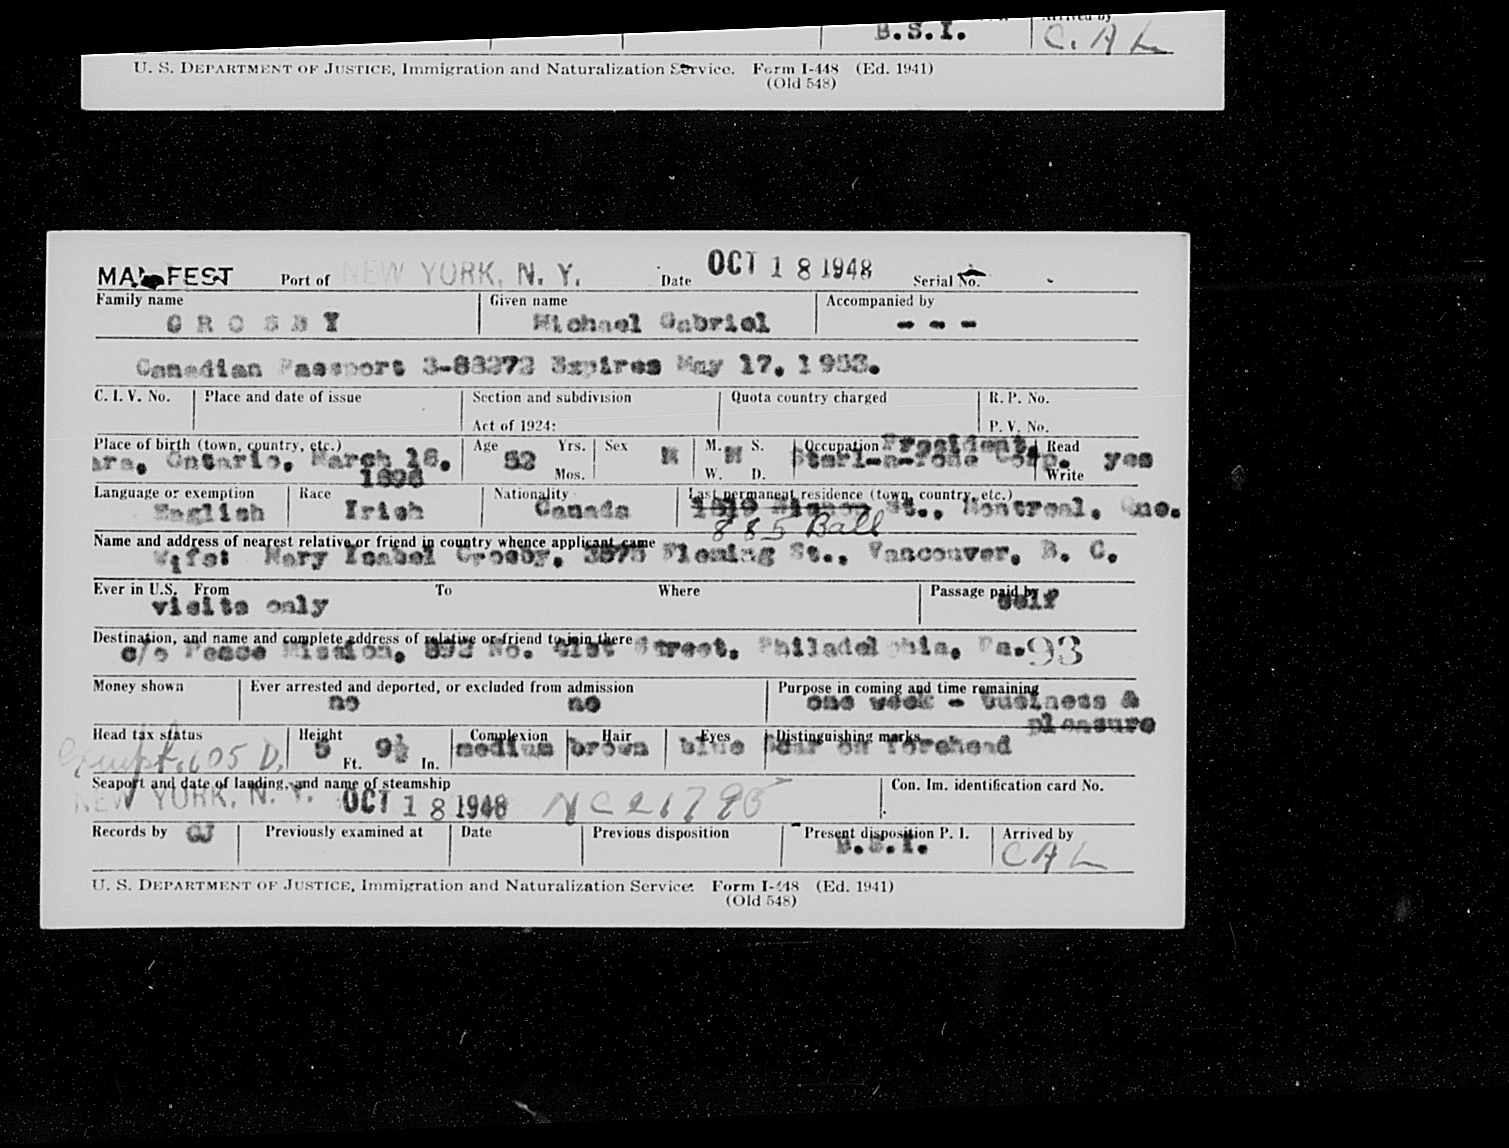 B.S.I.
Arrived by
C. A L
U. S. DEPARTMENT OF JUSTICE, Immigration and Naturalization Service. Form I-448 (Ed. 1941)
(Old 548)
MANIFEST Port of NEW YORK, N. Y. Date OCT 18 1948 Serial No.
Family name Given name Accompanied by
CROSBY Michael Gabriel - - -
Canadian Passport 3-88272 Expires May 17, 1953.
C. I. V. No. Place and date of issue Section and subdivision Quota country charged R. P. No.
Act of 1924: P. V. No.
Place of birth (town, country, etc.) Age Yrs. Sex M. S. Occupation President, Read
Ontario, March 18, 52 M M yes
1896 Mos. W. D. Write
Language or exemption Race Nationality Last permanent residence (town, country, etc.)
English Irish Canada St., Montreal, Que.
885 Ball
Name and address of nearest relative or friend in country whence applicant came
Wife: Mary Isabel Crosby, 3575 Fleming St., Vancouver, B. C.
Ever in U.S. From To Where Passage paid by
visits only self
Destination, and name and complete address of relative or friend to join there
c/o Peace Mission, 892 No. 41st Street, Philadelphia, Pa. 93
Money shown Ever arrested and deported, or excluded from admission Purpose in coming and time remaining
no no one week - business &
pleasure
Head tax status Height Complexion Hair Eyes Distinguishing marks
exempt. 605 D. 5 Ft. 9½ In. medium brown blue Scar on forehead
Seaport and date of landing, and name of steamship Con. Im. identification card No.
NEW YORK, N. Y. OCT 18 1948
Records by GJ Previously examined at Date Previous disposition Present disposition P. I. Arrived by
B.S.I. C A L
U. S. DEPARTMENT OF JUSTICE, Immigration and Naturalization Service. Form I-448 (Ed. 1941)
(Old 548)